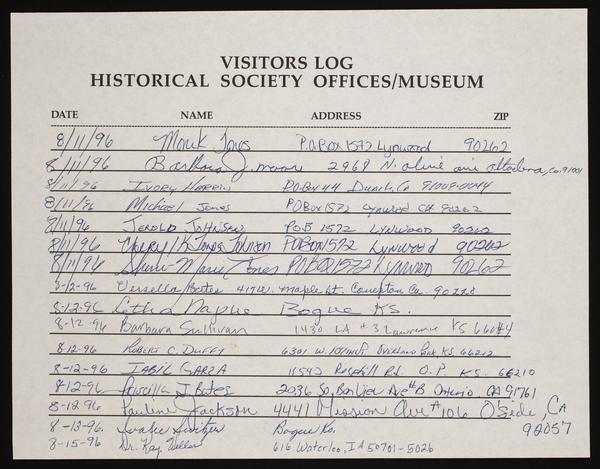 VISITORS LOG
HISTORICAL SOCIETY OFFICES/MUSEUM
DATE NAME ADDRESS ZIP
8/11/96 Jones P.O Box 1572 Lynwood 90262
8/11/96 Barbara J. Moore 2968 N. Olive Altadena, Ca. 91001
8/11/96 Ivory Harris PO Box 44 Duarte, Ca 91009-0044
8/11/96 Michael Jones P O Box 1572 Lynwood CA 90262
8/11/96 Jerold Johnson POB 1572 Lynwood 90262
8/11/96 Jones Johnson PO BOX 1572 Lynwood 90262
8/11/96 Sheri-Marie Jones PO BOX 1572 Lynwood 90262
8-12-96 Versella Bates 417 W. Maple St. Compton Ca. 90220
8-12-96 Letha Napue Bogue Ks.
8-12-96 Barbara Sullivan 1430 LA #3 Lawrence KS 66044
8-12-96 Robert C. Duffy 6301 W. Overland Park, KS. 66212
8-12-96 Garza 11542 Rd. O.P. KS. 66210
8-12-96 Priscilla J Bates 2036 So, Bon View Ave #B Ontario, CA 91761
8-12-96 Pauline Jackson 4441 Mission Ave #106 O'Side, CA
92057
8-13-96 Switzer Bogue Ks.
8-15-96 Dr. Kay 616 Waterloo, IA 50701-5026